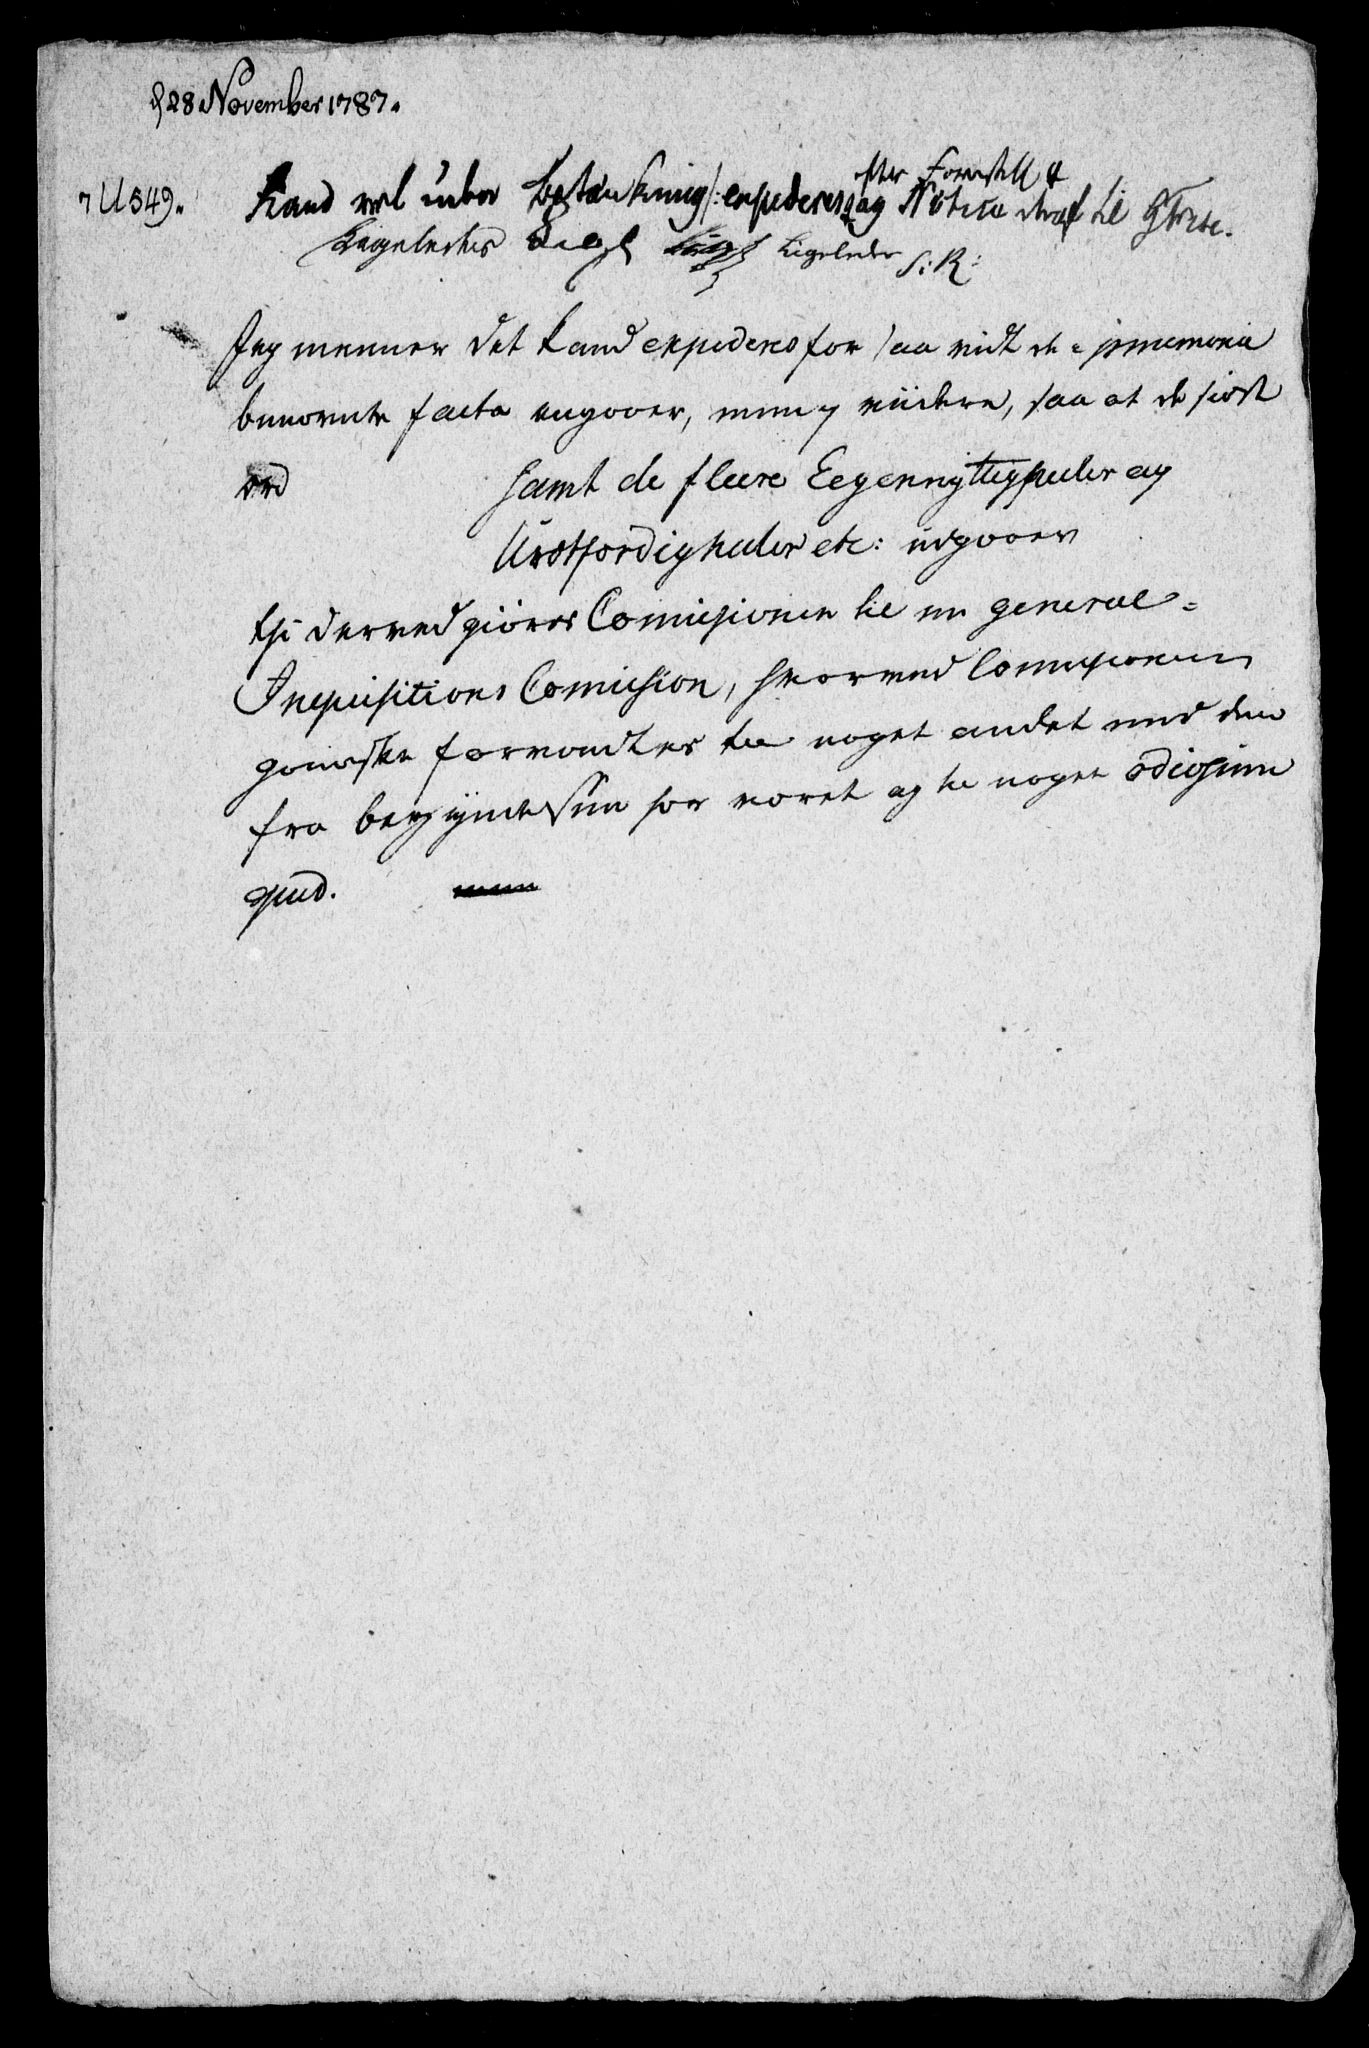 d 28 November 1787.
efter Forestill
7 U 549. Kand vel uden Betænkning expederes og Notice deraf til
Ligeledes Ligeledes
Jeg meener det kand expederes for saa vidt de i promemoria
benevnte facta angaaer, men ej viidere, saa at de sidst
ord samt de fleere Egennyttigheder og
Uretfærdigheder etc: udgaaer
thi derved giøres Comissionen til en general-
Inquisitions Comission, hvorved Comissionen
ganske forvandles til noget andet end den
fra begyndelsen har været og til noget odiosum
quid.